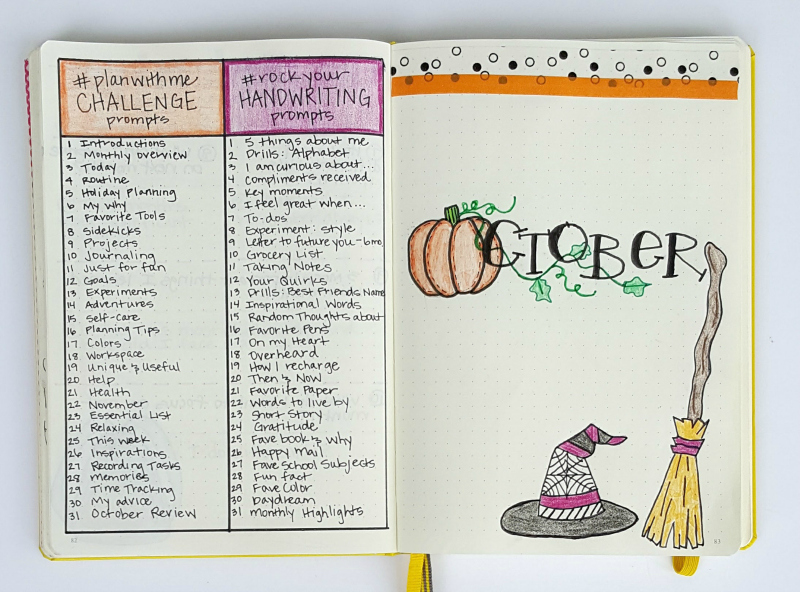 #planwithme
CHALLENGE
prompts
1 Introductions
2 Monthly overview
3 Today
4 Routine
5 Holiday Planning
6 My why
7 Favorite Tools
8 Sidekicks
9 Projects
10 Journaling
11 Just for fan
12 Goals
13 Experiments
14 Adventures
15 Self-care
16 Planning Tips
17 Colors
18 Workspace
19 Unique & Useful
20 Help
21 Health
22 November
23 Essential List
24 Relaxing
25 This week
26 Inspirations
27 Recording Tasks
28 memories
29 Time Tracking
30 My advice
31 October Review
#rockyour
HANDWRITING
prompts
1 5 things about me
2 Drills: Alphabet
3 I am curious about...
4 Compliments received
5 Key moments
6 I feel great when...
7 To-dos
8 Experiment: style
9 Letter to future you-6mo.
10 Grocery List
11 Taking Notes
12 Your Quirks
13 Drills: Best Friends Name
14 Inspirational Words
15 Random Thoughts about
16 Favorite Pens
17 On my Heart
18 Overheard
19 How I recharge
20 Then & Now
21 Favorite Paper
22 Words to live by
23 Short Story
24 Gratitude
25 Fave book & why
26 Happy Mail
27 Fave school Subjects
28 Fun fact
29 Fave Color
30 Daydream
31 monthly Highlights
82
OCTOBER
83